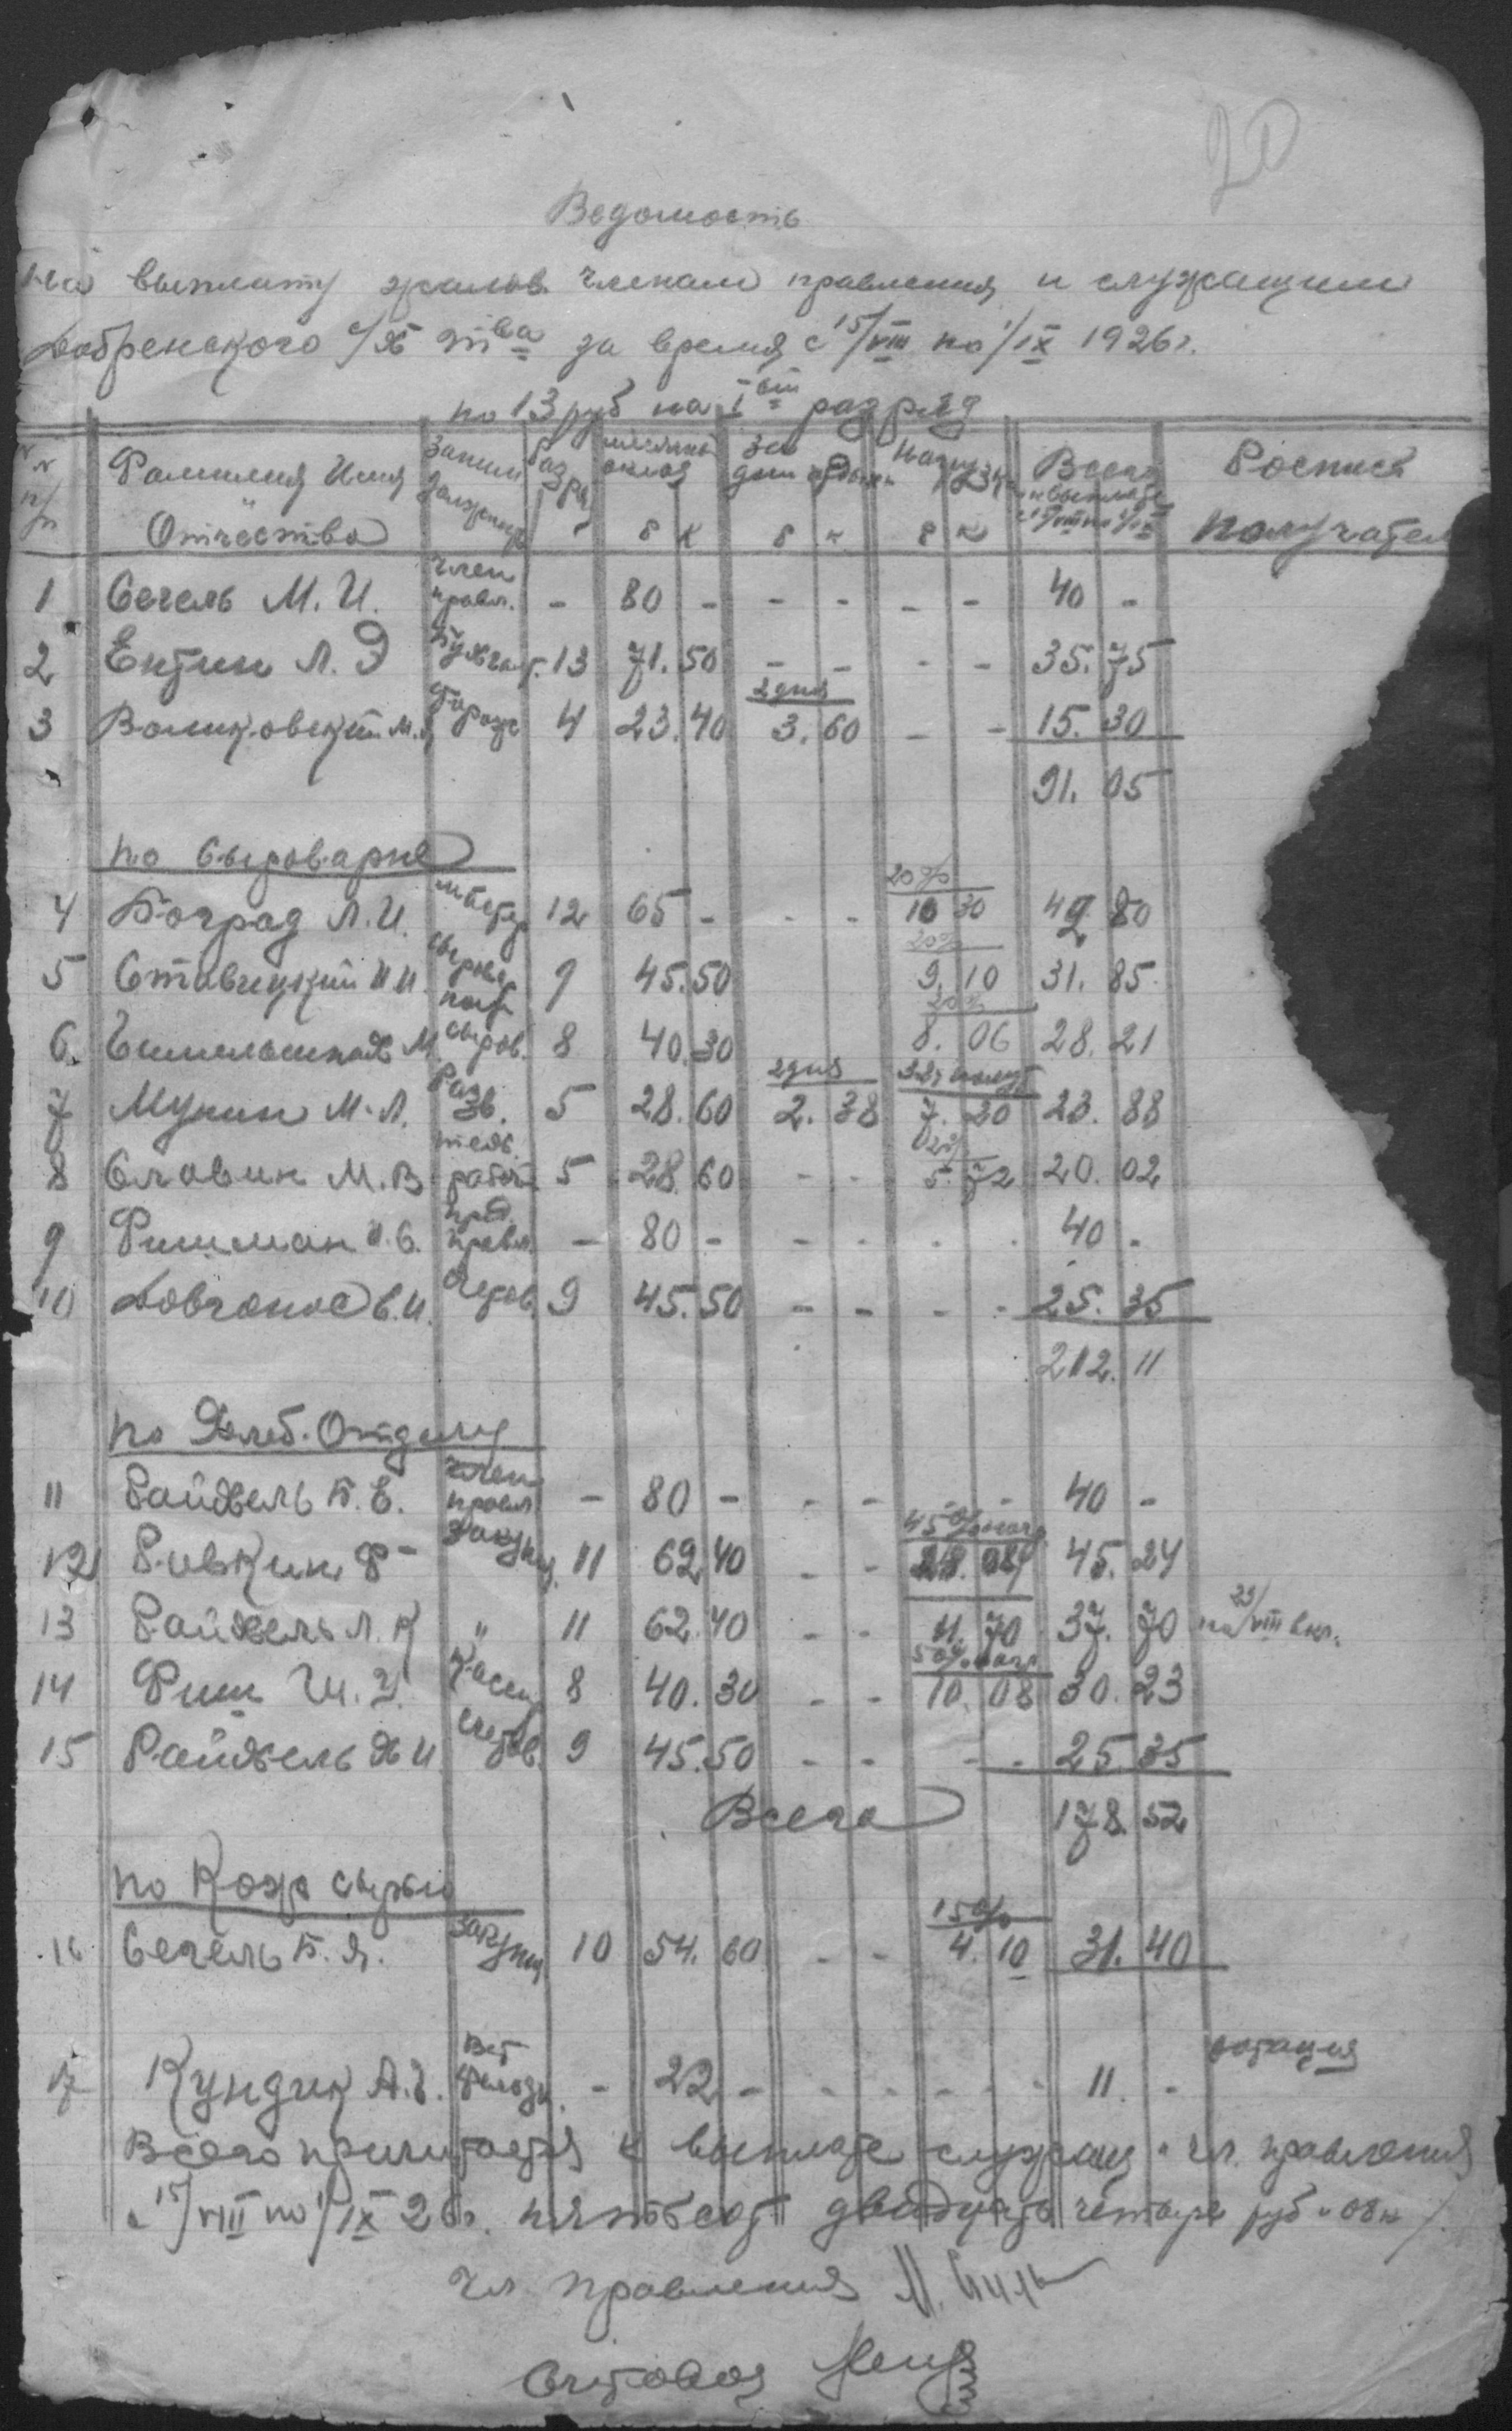 20
Ведомость
на выплату жалов. членам правления и служащим
Добренского с/х тва за время с 15/VIII по 1/IX 1926 г.
по 13 руб на I ый разряд
№№ п/п Фамилия Имя Отчество Заним. должность Разряд месячный оклад р к За дни р к Нагрузка р к Всего к выплате с 15/VIII по 1/IX Роспись получател
1 Сегель М. И. член правл. - 80 - - - - - 40 -
2 Ентин Л. Э Бухгалт. 13 71.50 - - - - 35.75
3 М. Сторож 4 23.40 2 дня 3.60 - - 15.30
91.05
по Сыроварне
4 Боград Л. И. мастер 12 65 - - - 20% 10 30 49 80
5 Ставицкий И.И. сыровар пом. 9 45.50 20% 9.10 31.85
6 М. сыров. 8 40.30 20% 8.06 28.21
7 Мукин М. Л. Разв. 5 28.60 2 дня 2.38 7.20 23.88
8 Славин М. В. рабоч 5 28.60 - - 5.72 20.02
9 Фишман И. С. пред. правл. - 80 - - - - - 40 -
10 Довгонос В. И. Счетов. 9 45.50 - - - - 25.35
212.11
по Хлеб. Отделу
11 Райхель Б. Е. член правл. - 80 - - - - - 40 -
12 Ривкин Ф- Закупщ. 11 62.40 - - 45% нагр 45.24
13 Райхель Л. К " 11 62.40 11.70 37.70 по 23/VIII вкл.
14 Фиш Ш. У. Кассир 8 40.30 - - 50% нагр 10.08 30.23
15 Райхель Х И. счетов. 9 45.50 - - - - 25.35
Всего 178.52
по Кожсырью
16 Сегель Б. Я. Закупщ 10 54.60 - - 15% 4.10 31.40
17 Кундик А. Г. Вет фельдш. - 22 - - - - - 11. - дотация
Всего причитается к выплате служащ и чл. правления
с 15/VIII по 1/IX 26 г. пятьсот двадцать четыре руб 08 к
Чл. правления
Счетовод